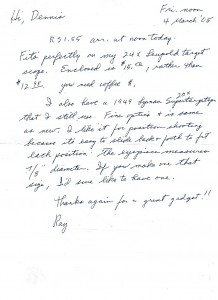 Fri. noon
Hi, Dennis 4 March 05
RS1.55 arr. at noon today.
Fits perfectly on my 24X Leupold target
scope. Enclosed is $15.00, rather than
$12.95 you red coffee $.
I also have a 1949 Lyman Supertargetspot
20X
that I still use. Fine optics & is same
as new. I like it for position shooting
because its easy to slide back & forth to fit
each position. The eyepiece measures
7/8" diameter. If you make one that
size, I'd sure like to have one.
Thanks again for a great gadget!!
Ray